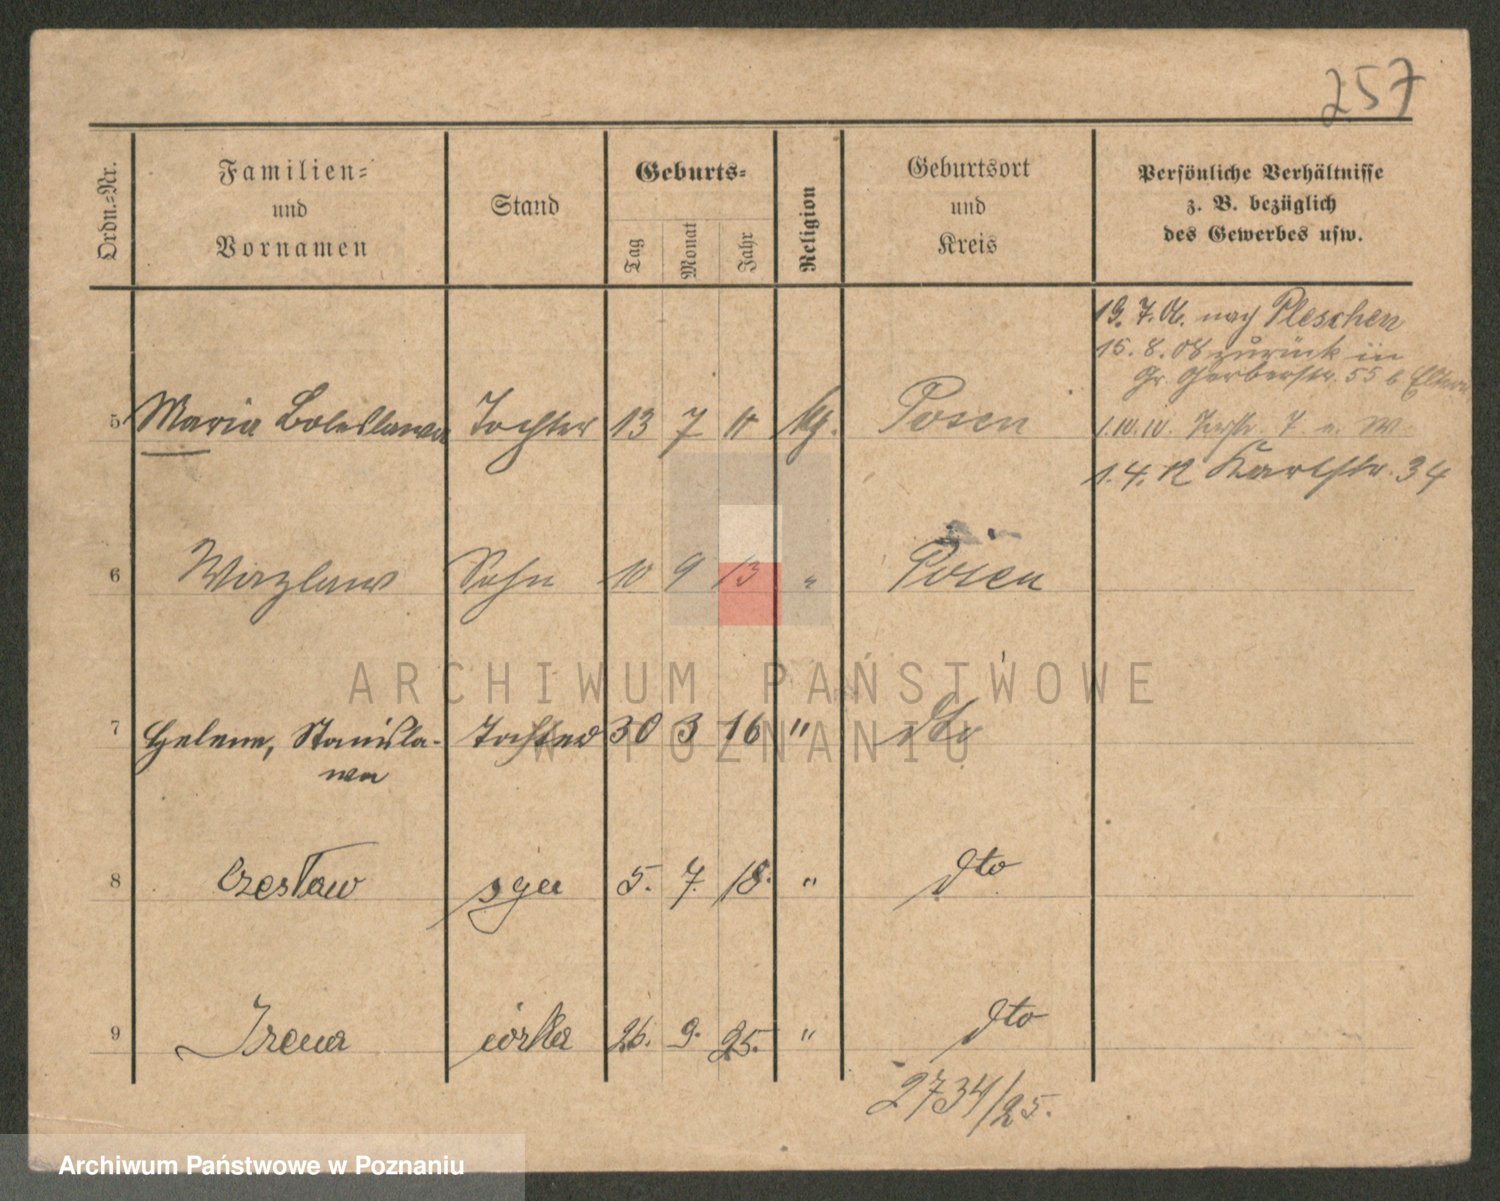 257
Ordn.-Nr.
Familien-
und
Vornamen
Stand
Geburts-
Tag
Monat
Jahr
Religion
Geburtsort
und
Kreis
Persönliche Verhältnisse
z. B. bezüglich
des Gewerbes usw.
19. 7. 06. nach Pleschen
15. 8. 08 zurück in
Gr. Gerberstr. 55 b. Eltern
5 Maria Boleslawa Tochter 13 7 11 kth. Posen
1.10.10.
1. 4. 12 Karlstr. 34
6 Wazlaw Sohn 10 9 13 " Posen
7 Helene, Stanisla- Tochter 30 3 16 " dto
wa
8 Czesław syn 5. 7. 18. " dto
9 Irena córka 26. 9. 25. " dto
2734/25.
ARCHIWUM PAŃSTWOWE
W POZNANIU
Archiwum Państwowe w Poznaniu